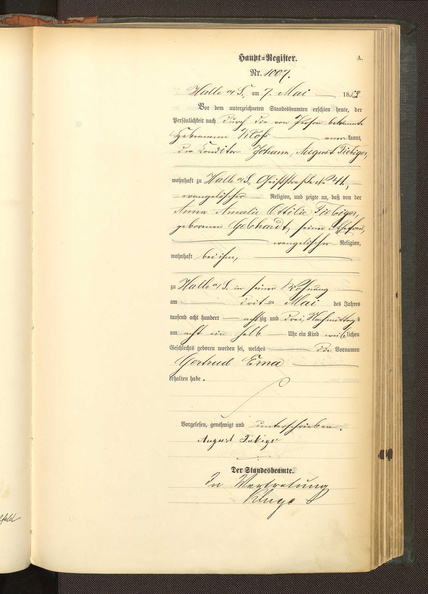 A.
Haupt-Register.
Nr. 1007.
Halle a/S., am 7. Mai 188
Vor dem unterzeichneten Standesbeamten erschien heute, der
Persönlichkeit nach durch die von Person bekannte
Hebamme anerkannt,
der Conditor Johann August Fiebiger,
wohnhaft zu Halle a/S.,
evangelischer Religion, und zeigte an, daß von der
Anna Amalie Ottilie Fiebiger,
geborenen Gebhardt, seiner Ehefrau,
evangelischer Religion,
wohnhaft bei ihm,
zu Halle a/S. in seiner Wohnung
am Mai des Jahres
tausend acht hundert achtzig und drei Nachmittags
um acht ein halb Uhr ein Kind weiblichen
Geschlechts geboren worden sei, welches die Vornamen
Gertrud Erna
erhalten habe.
Vorgelesen, genehmigt und unterschrieben.
August Fiebiger
Der Standesbeamte.
In Vertretung